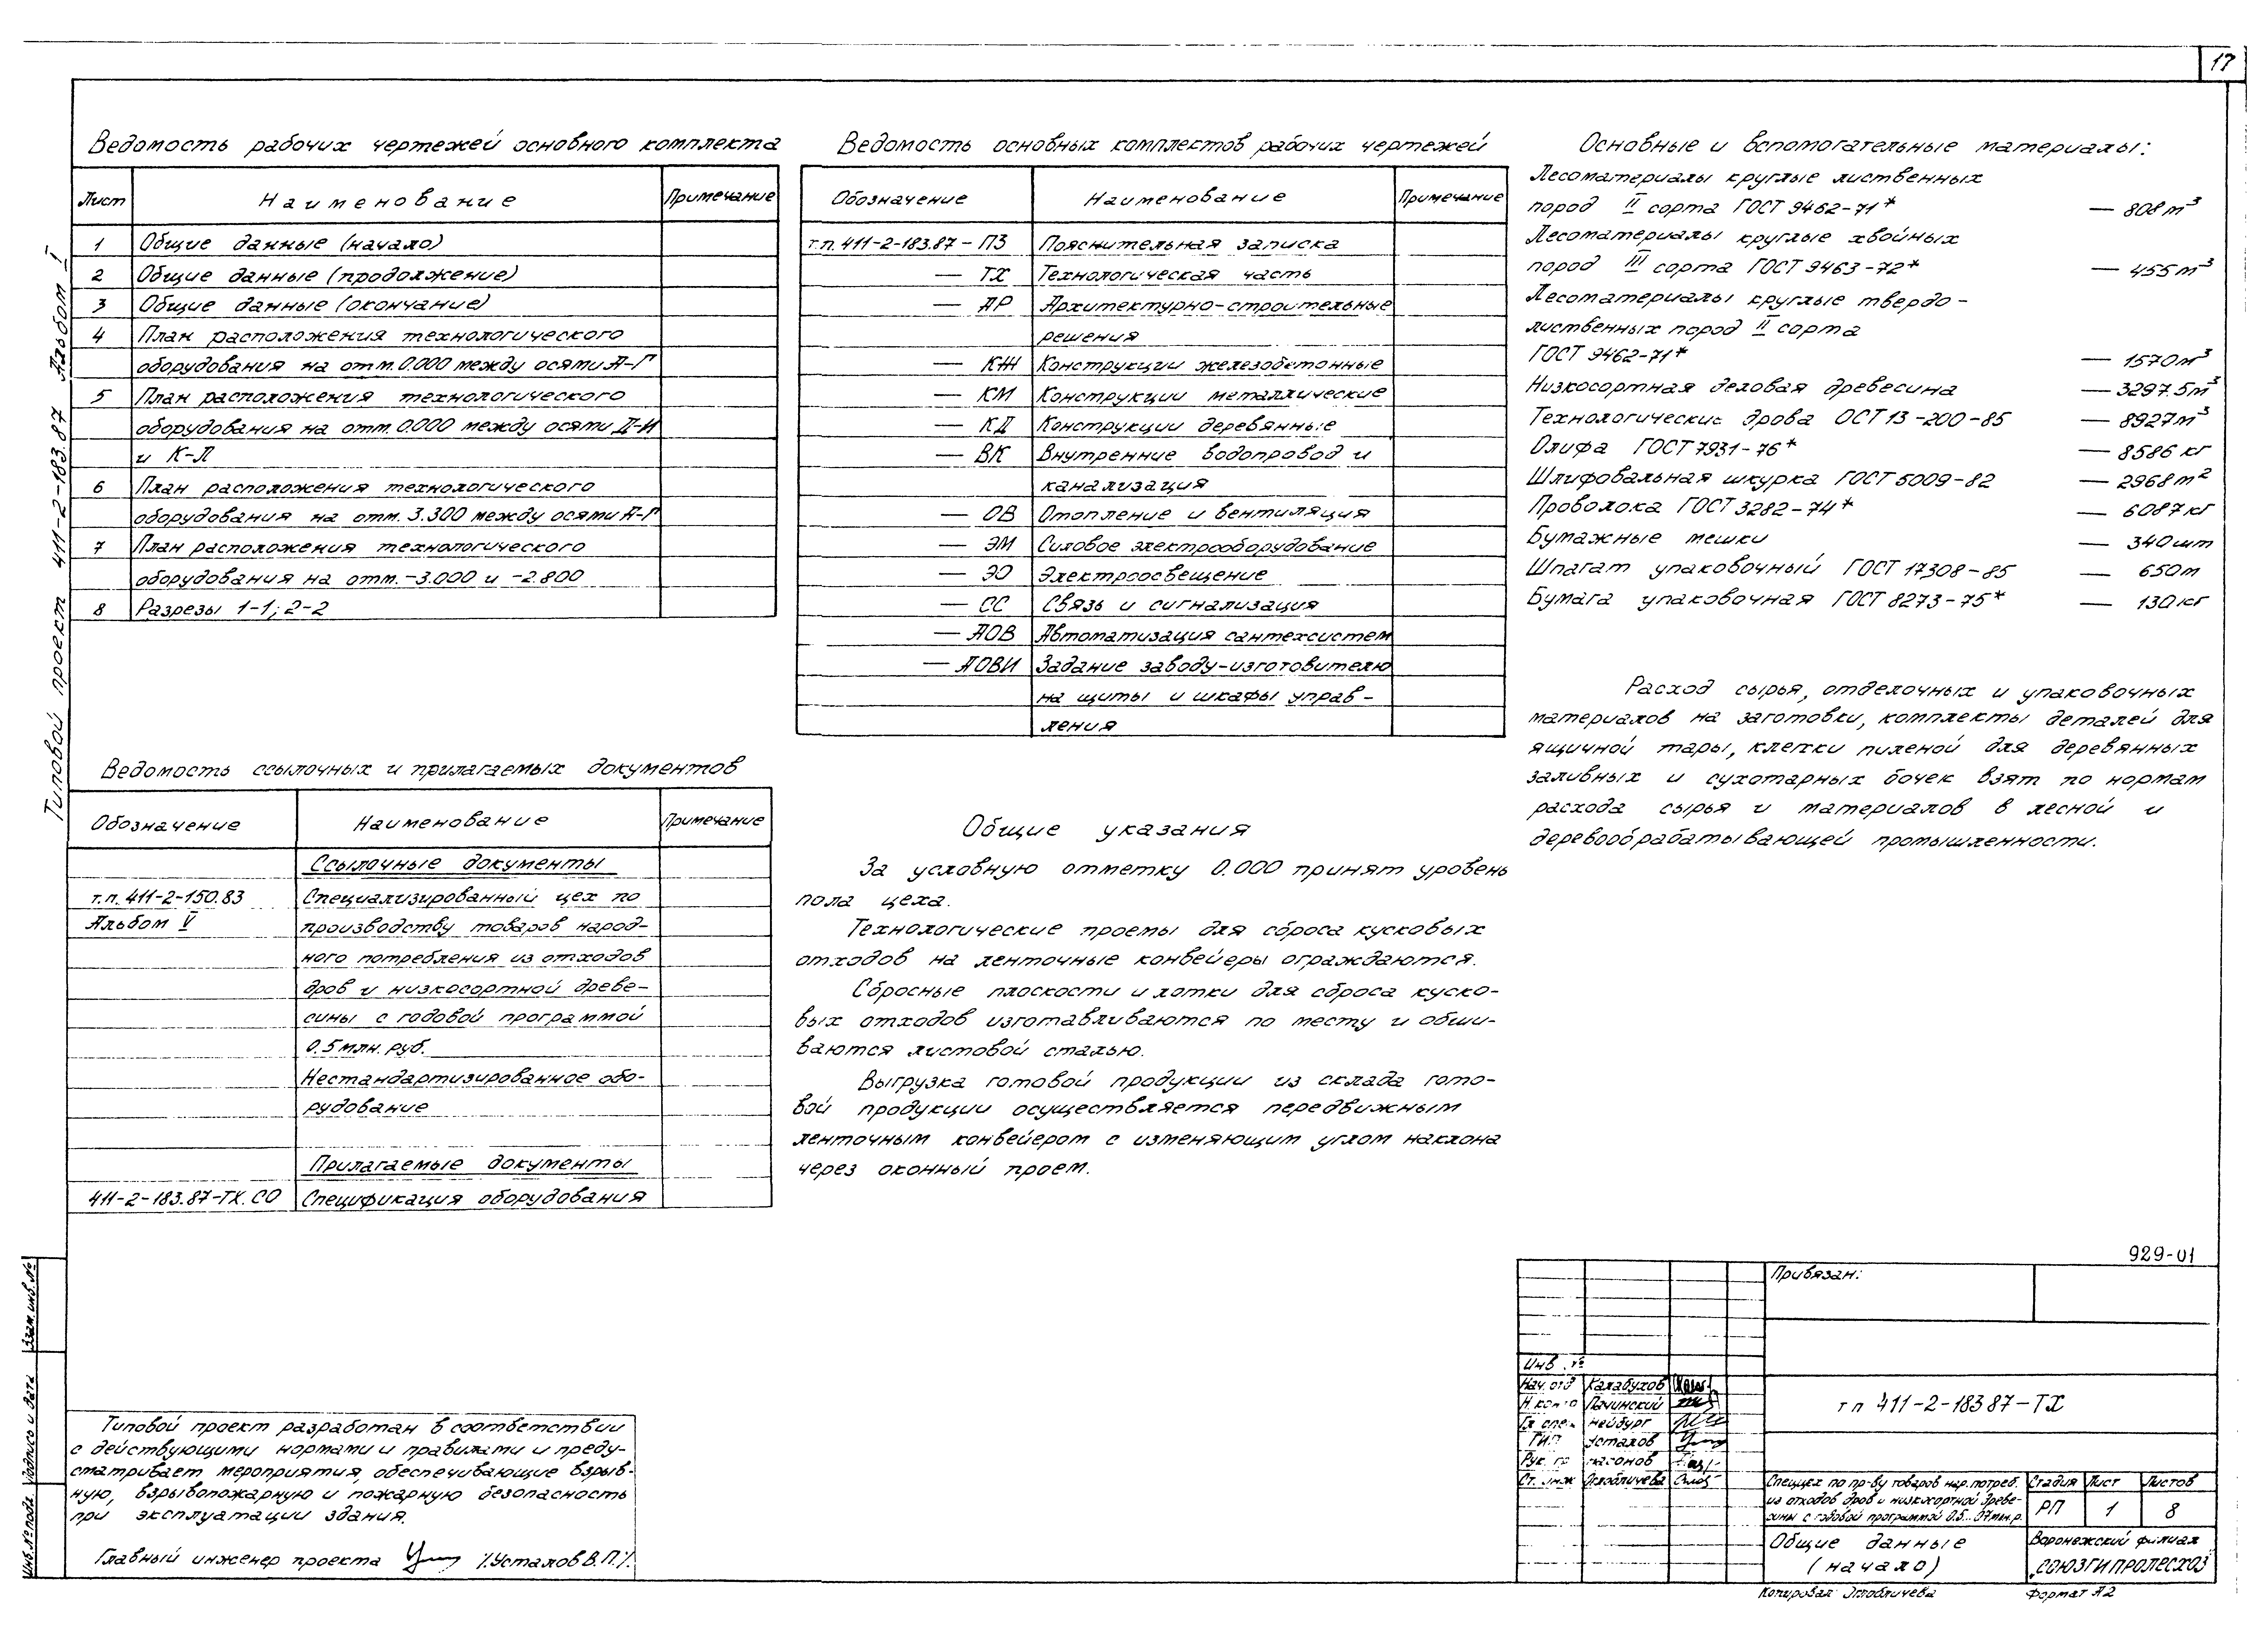 17
Типовой проект 411-2-183.87 Альбом I
Ведомость рабочих чертежей основного комплекта
Лист Наименование Примечание
1 Общие данные (начало)
2 Общие данные (продолжение)
3 Общие данные (окончание)
4 План расположения технологического
оборудования на отм. 0.000 между осями А-Г
5 План расположения технологического
оборудования на отм. 0.000 между осями Д-И
и К-Л
6 План расположения технологического
оборудования на отм. 3.300 между осями А-Г
7 План расположения технологического
оборудования на отм. -3.000 и -2.800
8 Разрезы 1-1; 2-2
Ведомость ссылочных и прилагаемых документов
Обозначение Наименование Примечание
Ссылочные документы
т.п. 411-2-150.83 Специализированный цех по
Альбом V производству товаров народ-
ного потребления из отходов
дров и низкосортной древе-
сины с годовой программой
0.5 млн. руб.
Нестандартизированное обо-
рудование
Прилагаемые документы
411-2-183.87-ТХ.СО Спецификация оборудования
Ведомость основных комплектов рабочих чертежей
Обозначение Наименование Примечание
т.п. 411-2-183.87 - ПЗ Пояснительная записка
— ТХ Технологическая часть
— АР Архитектурно-строительные
решения
— КЖ Конструкции железобетонные
— КМ Конструкции металлические
— КД Конструкции деревянные
— ВК Внутренние водопровод и
канализация
— ОВ Отопление и вентиляция
— ЭМ Силовое электрооборудование
— ЭО Электроосвещение
— СС Связь и сигнализация
— АОВ Автоматизация сантехсистем
— АОВИ Задание заводу-изготовителю
на щиты и шкафы управ-
ления
Общие указания
За условную отметку 0.000 принят уровень
пола цеха.
Технологические проемы для сброса кусковых
отходов на ленточные конвейеры ограждаются.
Сбросные плоскости и лотки для сброса куско-
вых отходов изготавливаются по месту и обши-
ваются листовой сталью.
Выгрузка готовой продукции из склада гото-
вой продукции осуществляется передвижным
ленточным конвейером с изменяющим углом наклона
через оконный проем.
Основные и вспомогательные материалы:
Лесоматериалы круглые лиственных
пород II сорта ГОСТ 9462-71* — 808 м³
Лесоматериалы круглые хвойных
пород III сорта ГОСТ 9463-72* — 455 м³
Лесоматериалы круглые твердо-
лиственных пород II сорта
ГОСТ 9462-71* — 1570 м³
Низкосортная деловая древесина — 3297.5 м³
Технологические дрова ОСТ 13-200-85 — 8927 м³
Олифа ГОСТ 7931-76* — 8586 кг
Шлифовальная шкурка ГОСТ 5009-82 — 2968 м²
Проволока ГОСТ 3282-74* — 6087 кг
Бумажные мешки — 340 шт
Шпагат упаковочный ГОСТ 17308-85 — 650 м
Бумага упаковочная ГОСТ 8273-75* — 130 кг
Расход сырья, отделочных и упаковочных
материалов на заготовки, комплекты деталей для
ящичной тары, клепки пиленой для деревянных
заливных и сухотарных бочек взят по нормам
расхода сырья и материалов в лесной и
деревообрабатывающей промышленности.
Типовой проект разработан в соответствии
с действующими нормами и правилами и преду-
сматривает мероприятия, обеспечивающие взрыв-
ную, взрывопожарную и пожарную безопасность
при эксплуатации здания.
Главный инженер проекта /Усталов В.П./
Взам. инв. №
Подпись и дата
Инв. № подл.
929-01
Привязан:
Инв. №
Нач. отд Калабухов
Н. контр Пачинский
Гл. спец
ГИП Усталов
Рук. гр
Ст. инж
т п 411-2-183 87-ТХ
Спеццех по пр-ву товаров нар. потреб.
из отходов дров и низкосортной древе-
сины с годовой программой 0.5...0.7 млн. р.
Стадия Лист Листов
РП 1 8
Общие данные
(начало)
Воронежский филиал
„СОЮЗГИПРОЛЕСХОЗ"
Копировал
Формат А2